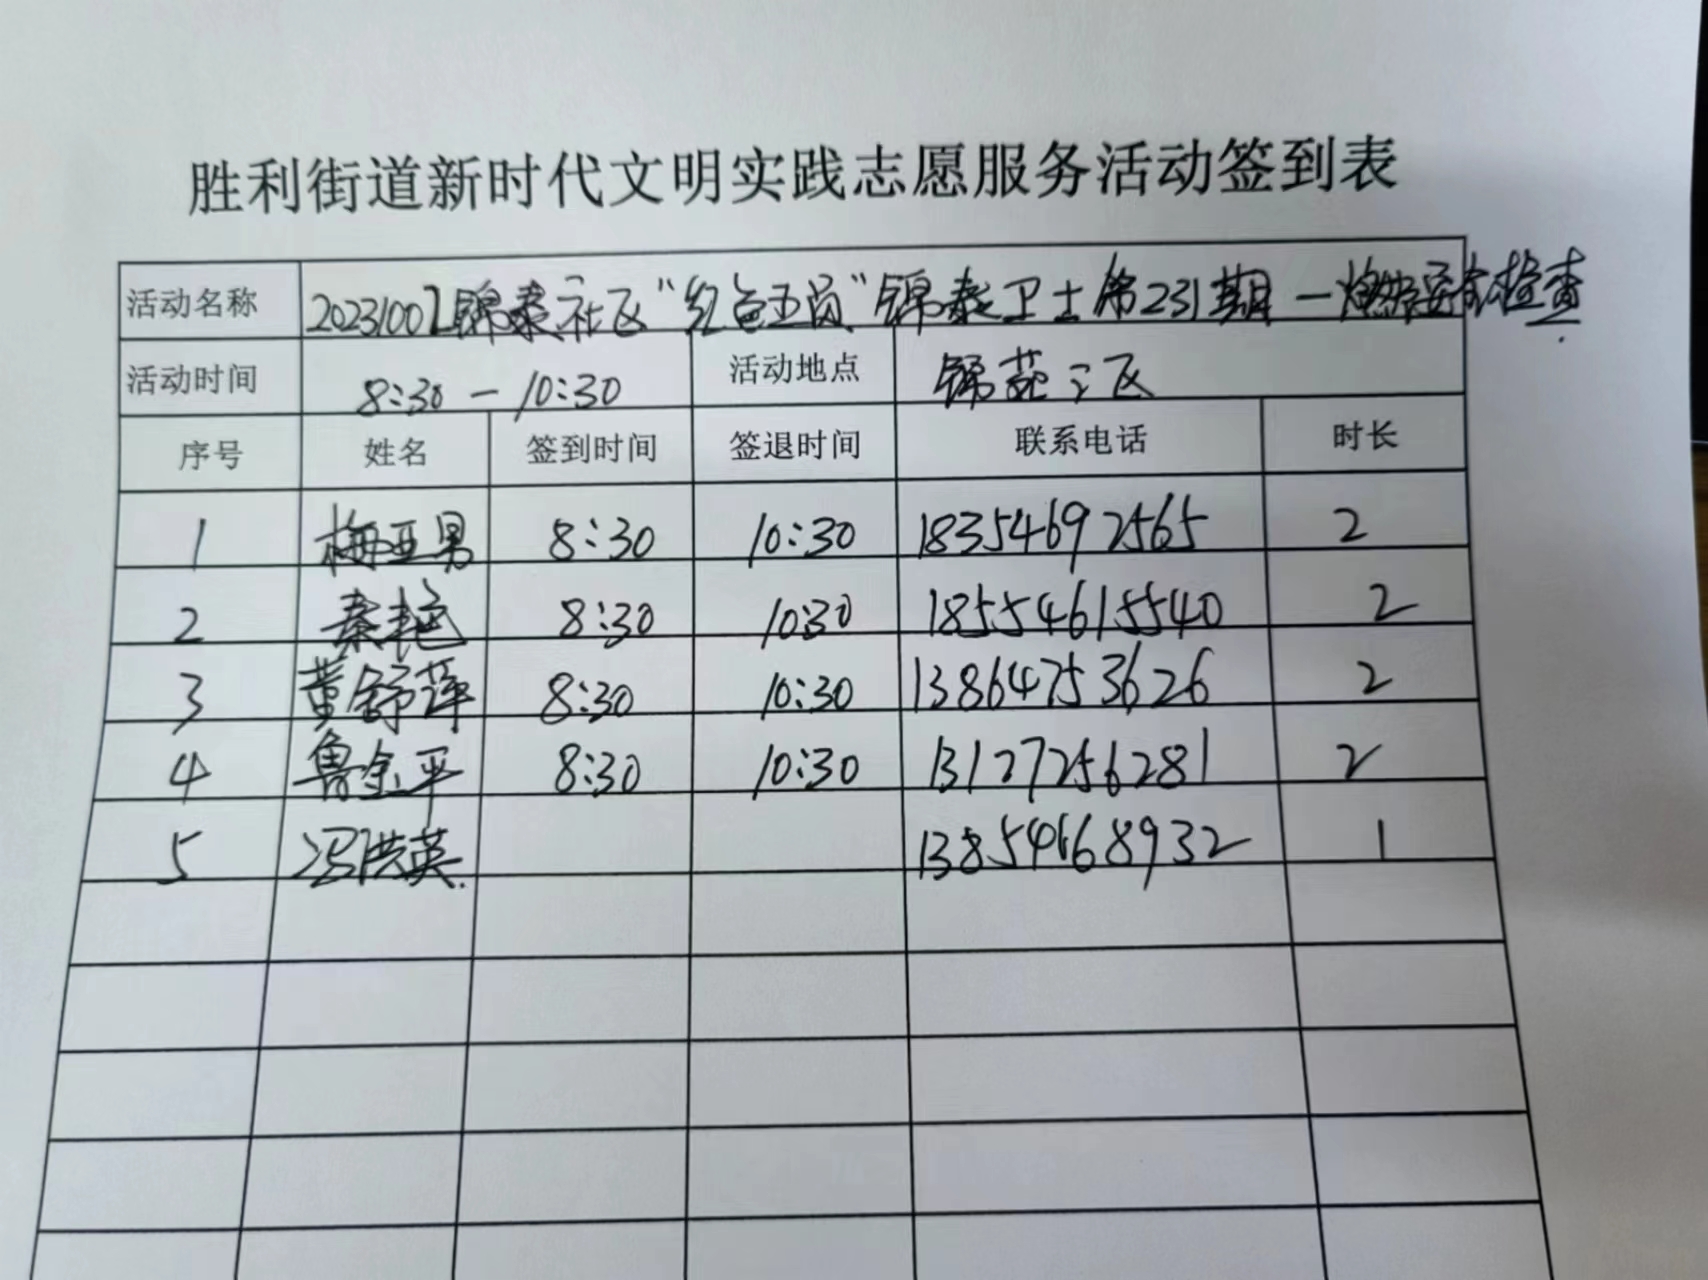 胜利街道新时代文明实践志愿服务活动签到表
活动名称 20231007锦泰社区“红色五员”锦泰卫士第231期—燃气安全检查
活动时间 8:30 — 10:30 活动地点 锦苑三区
序号 姓名 签到时间 签退时间 联系电话 时长
1 梅亚男 8:30 10:30 18354692565 2
2 秦艳 8:30 10:30 18554615540 2
3 黄舒萍 8:30 10:30 13864753626 2
4 鲁金平 8:30 10:30 13127256281 2
5 冯洪英 13854668932 1